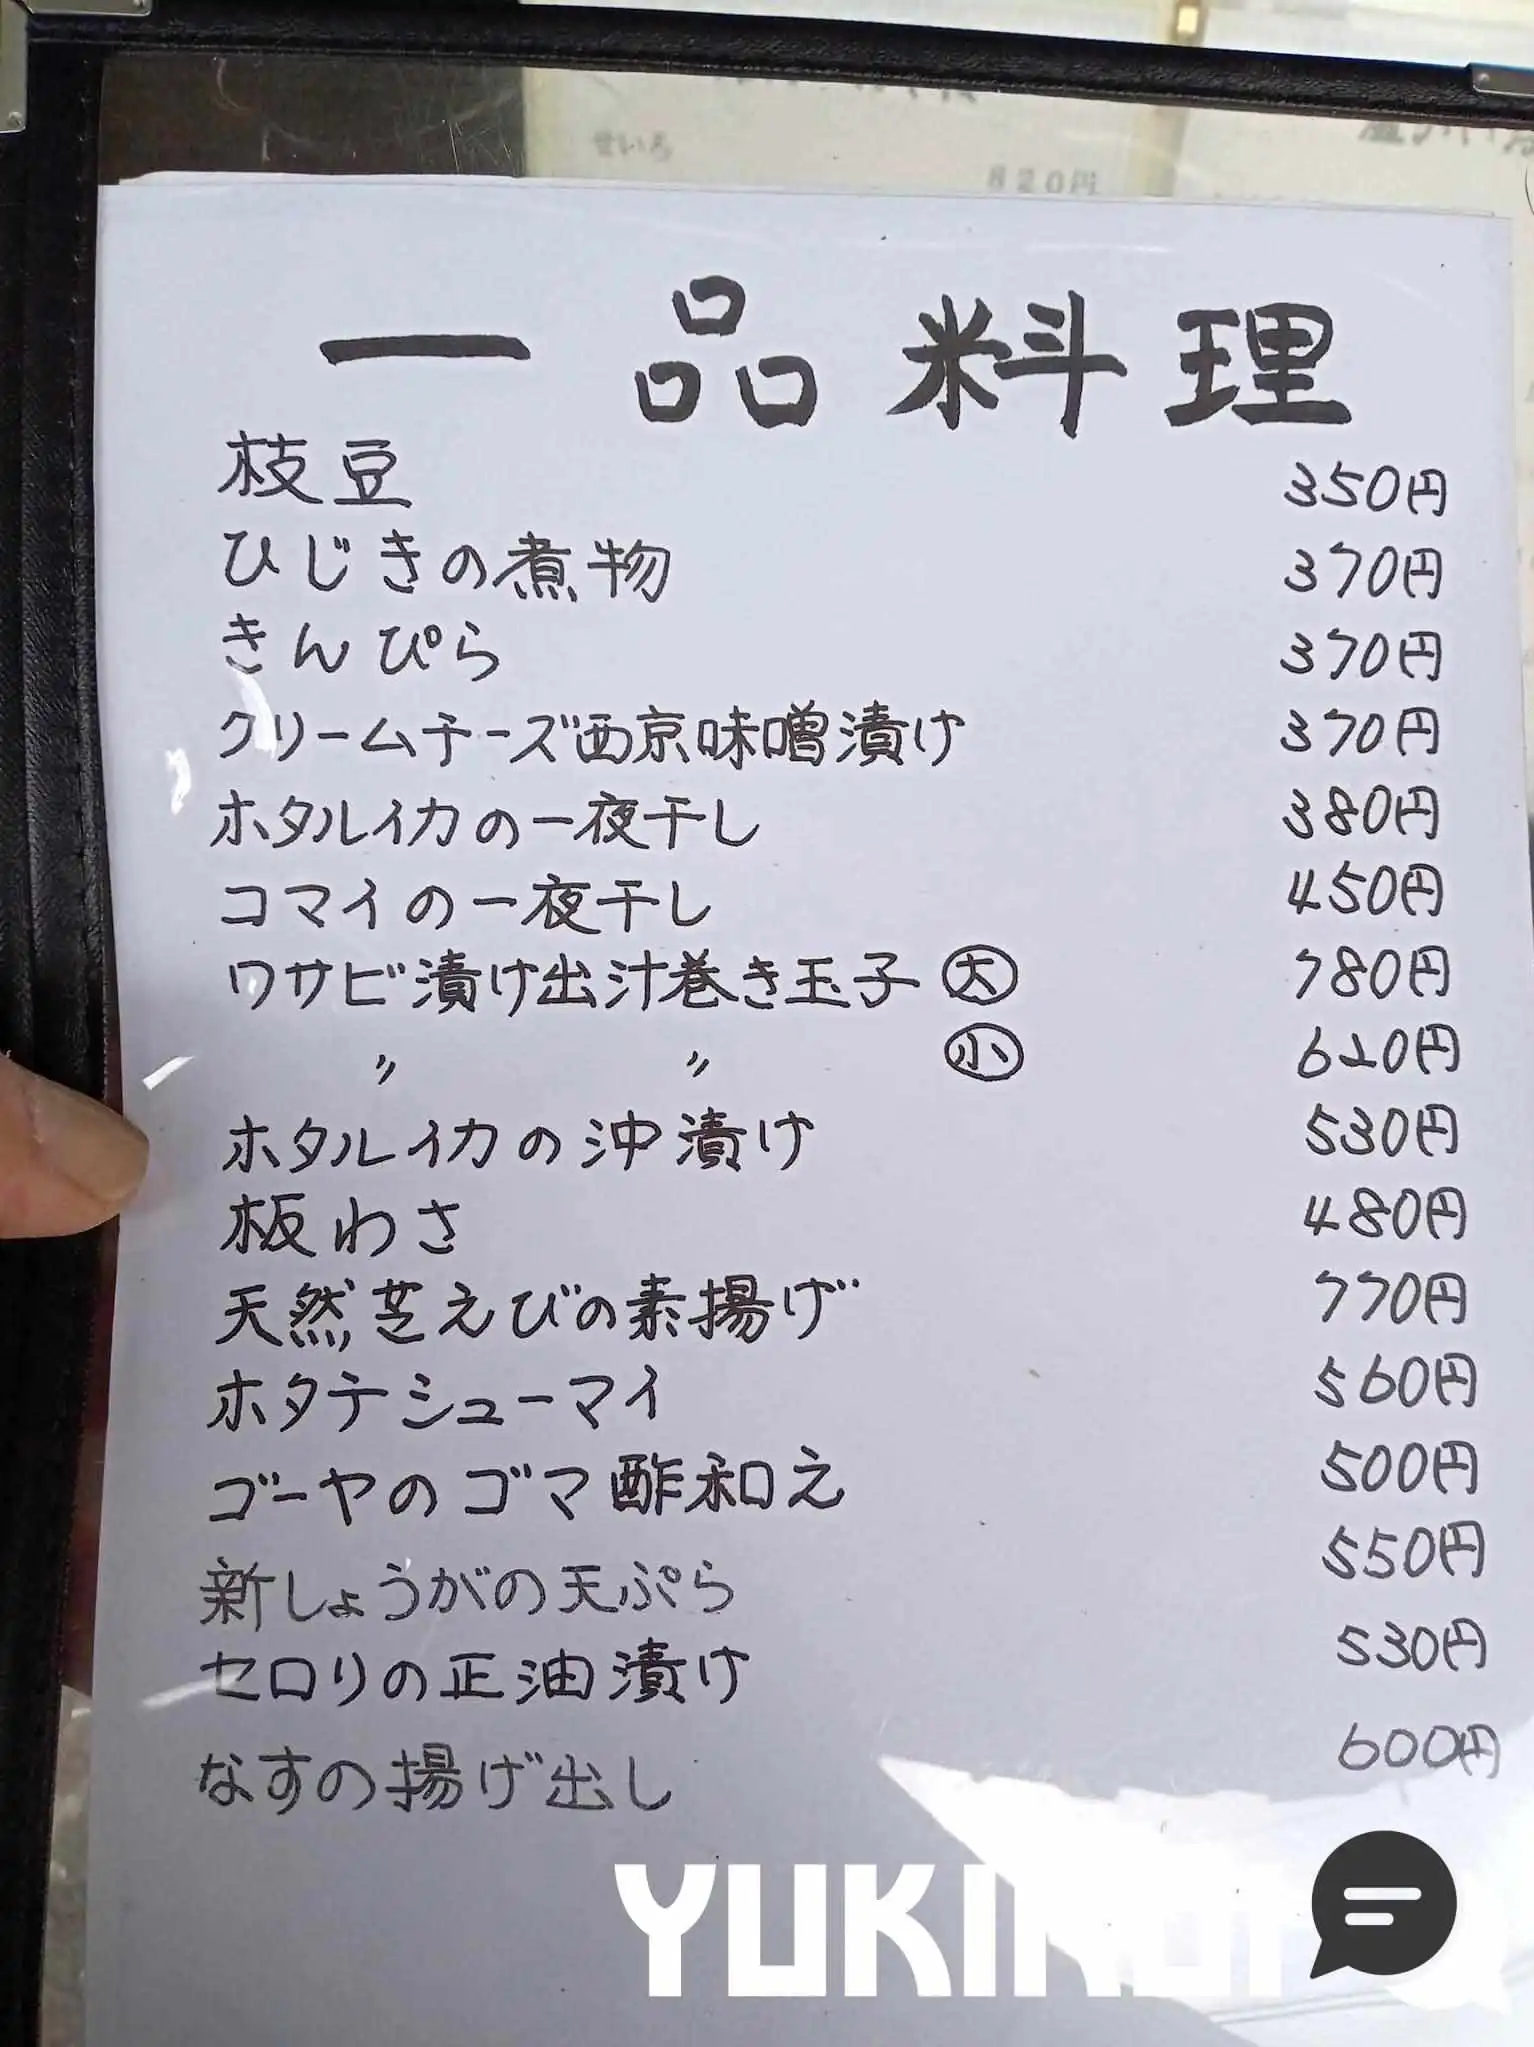 せいろ 820円
一品料理
枝豆 350円
ひじきの煮物 370円
きんぴら 370円
クリームチーズ西京味噌漬け 370円
ホタルイカの一夜干し 380円
コマイの一夜干し 450円
ワサビ漬け出汁巻き玉子 大 780円
〃 〃 小 620円
ホタルイカの沖漬け 530円
板わさ 480円
天然芝えびの素揚げ 770円
ホタテシューマイ 560円
ゴーヤのゴマ酢和え 500円
新しょうがの天ぷら 550円
セロリの正油漬け 530円
なすの揚げ出し 600円